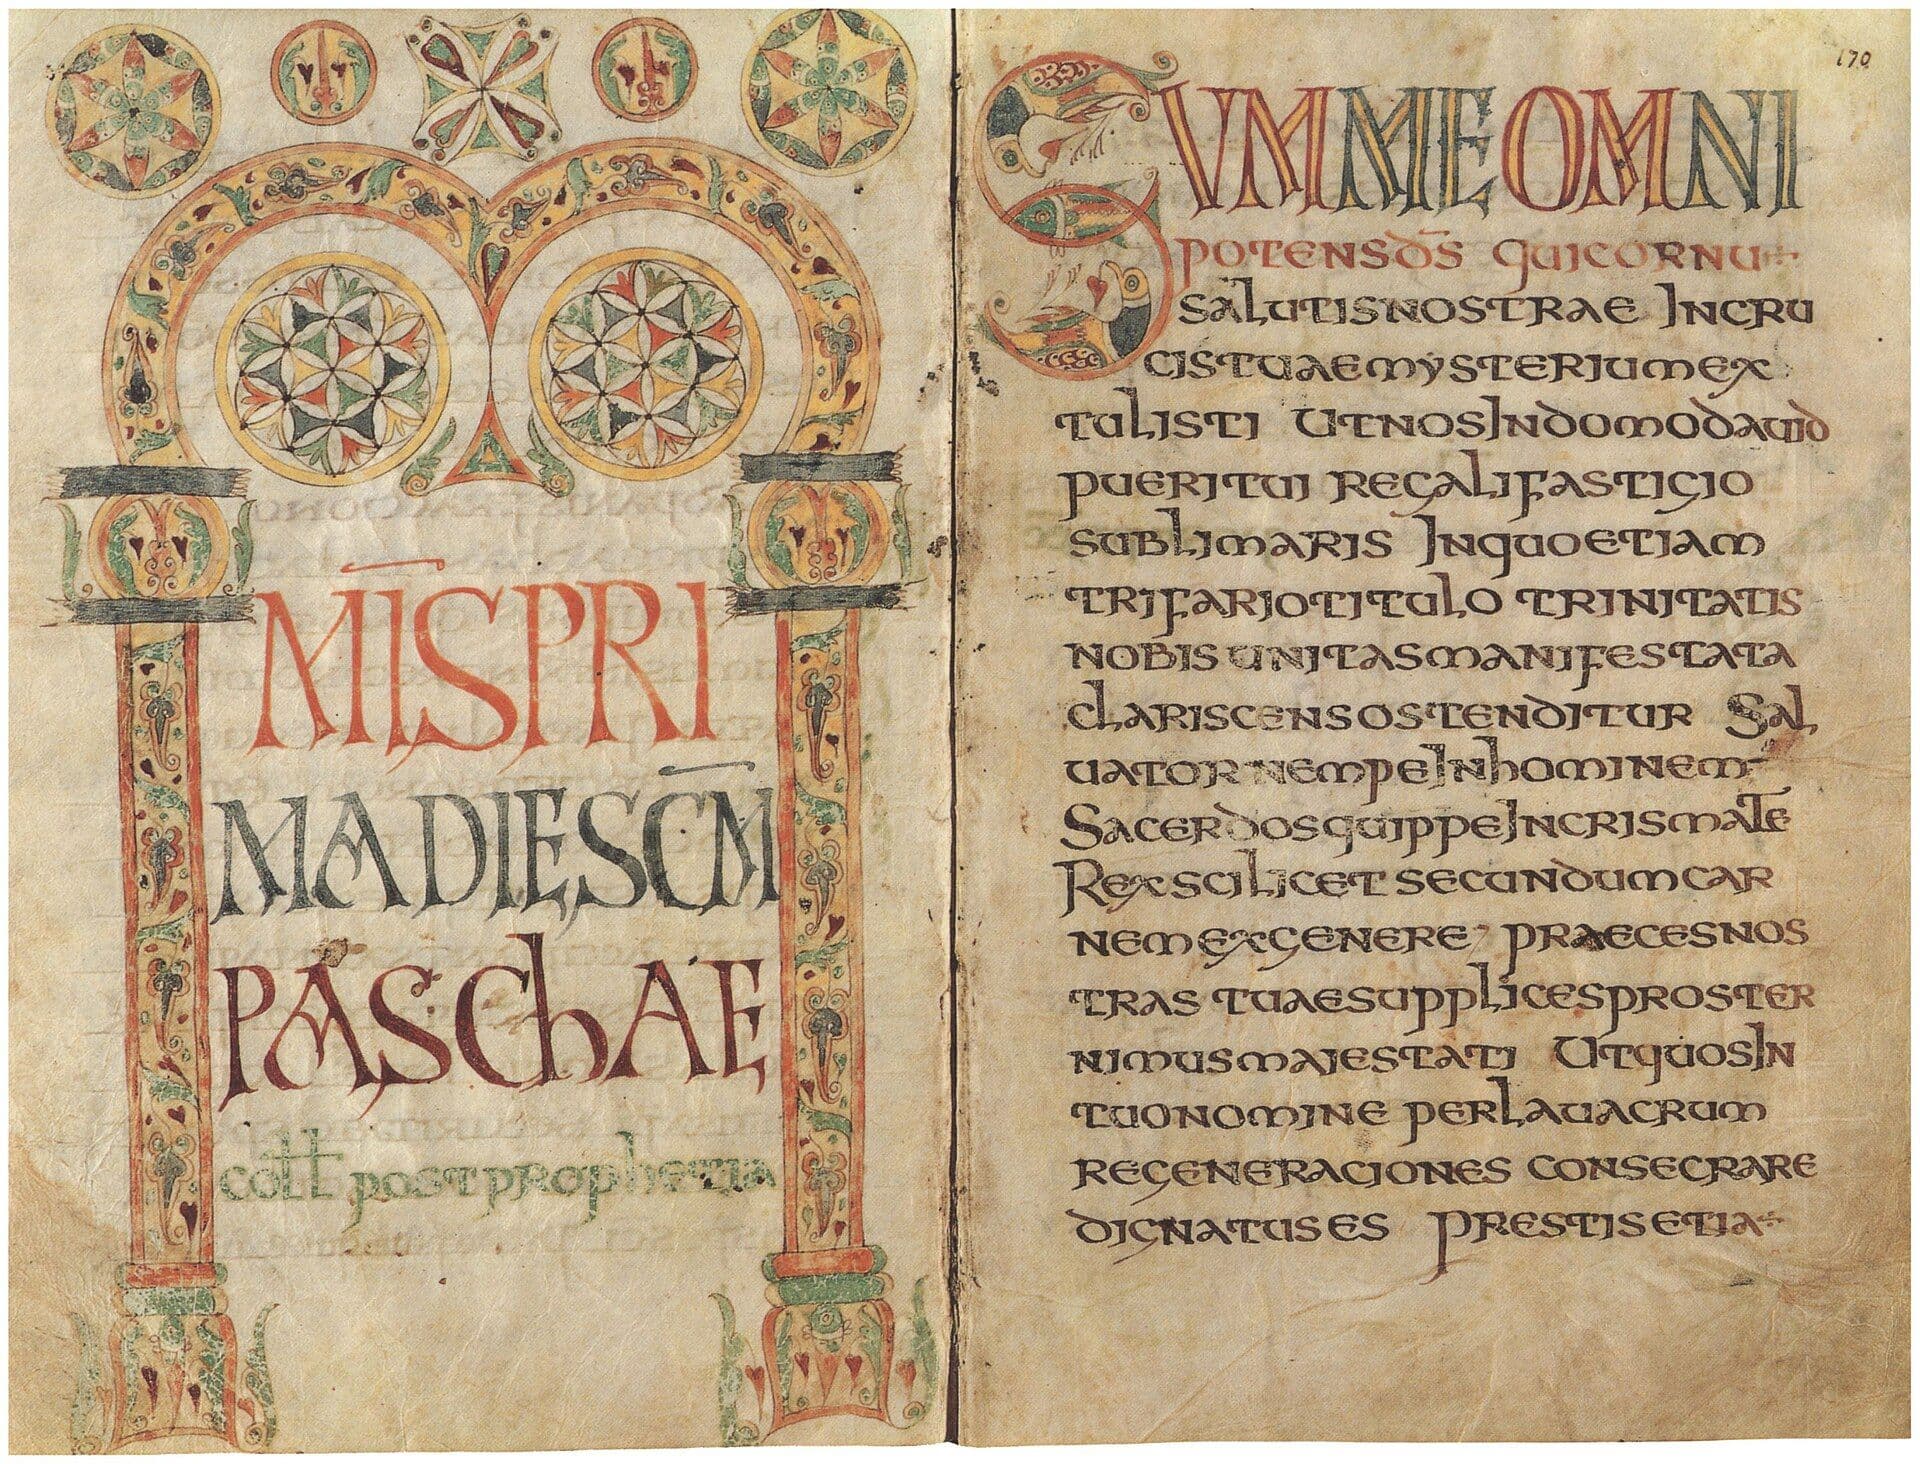 MIS PRI
MA DIE SCM
PASChAE
coll post prophetia
170
SUMME OMNI
POTENS DS QUI CORNU
SALUTIS NOSTRAE IN CRU
CIS TUAE MYSTERIUM EX
TULISTI UT NOS IN DOMO DAUID
PUERI TUI REGALI FASTIGIO
SUBLIMARIS IN QUO ETIAM
TRIFARIO TITULO TRINITATIS
NOBIS UNITAS MANIFESTATA
CLARISCENS OSTENDITUR SAL
UATOR NEMPE IN HOMINEM
SACERDOS QUIPPE IN CRISMATE
REX SCILICET SECUNDUM CAR
NEM EX GENERE PRAECES NOS
TRAS TUAE SUPPLICES PROSTER
NIMUS MAIESTATI UT QUOS IN
TUO NOMINE PER LAUACRUM
REGENERACIONES CONSECRARE
DIGNATUS ES PRESTIS ETIA